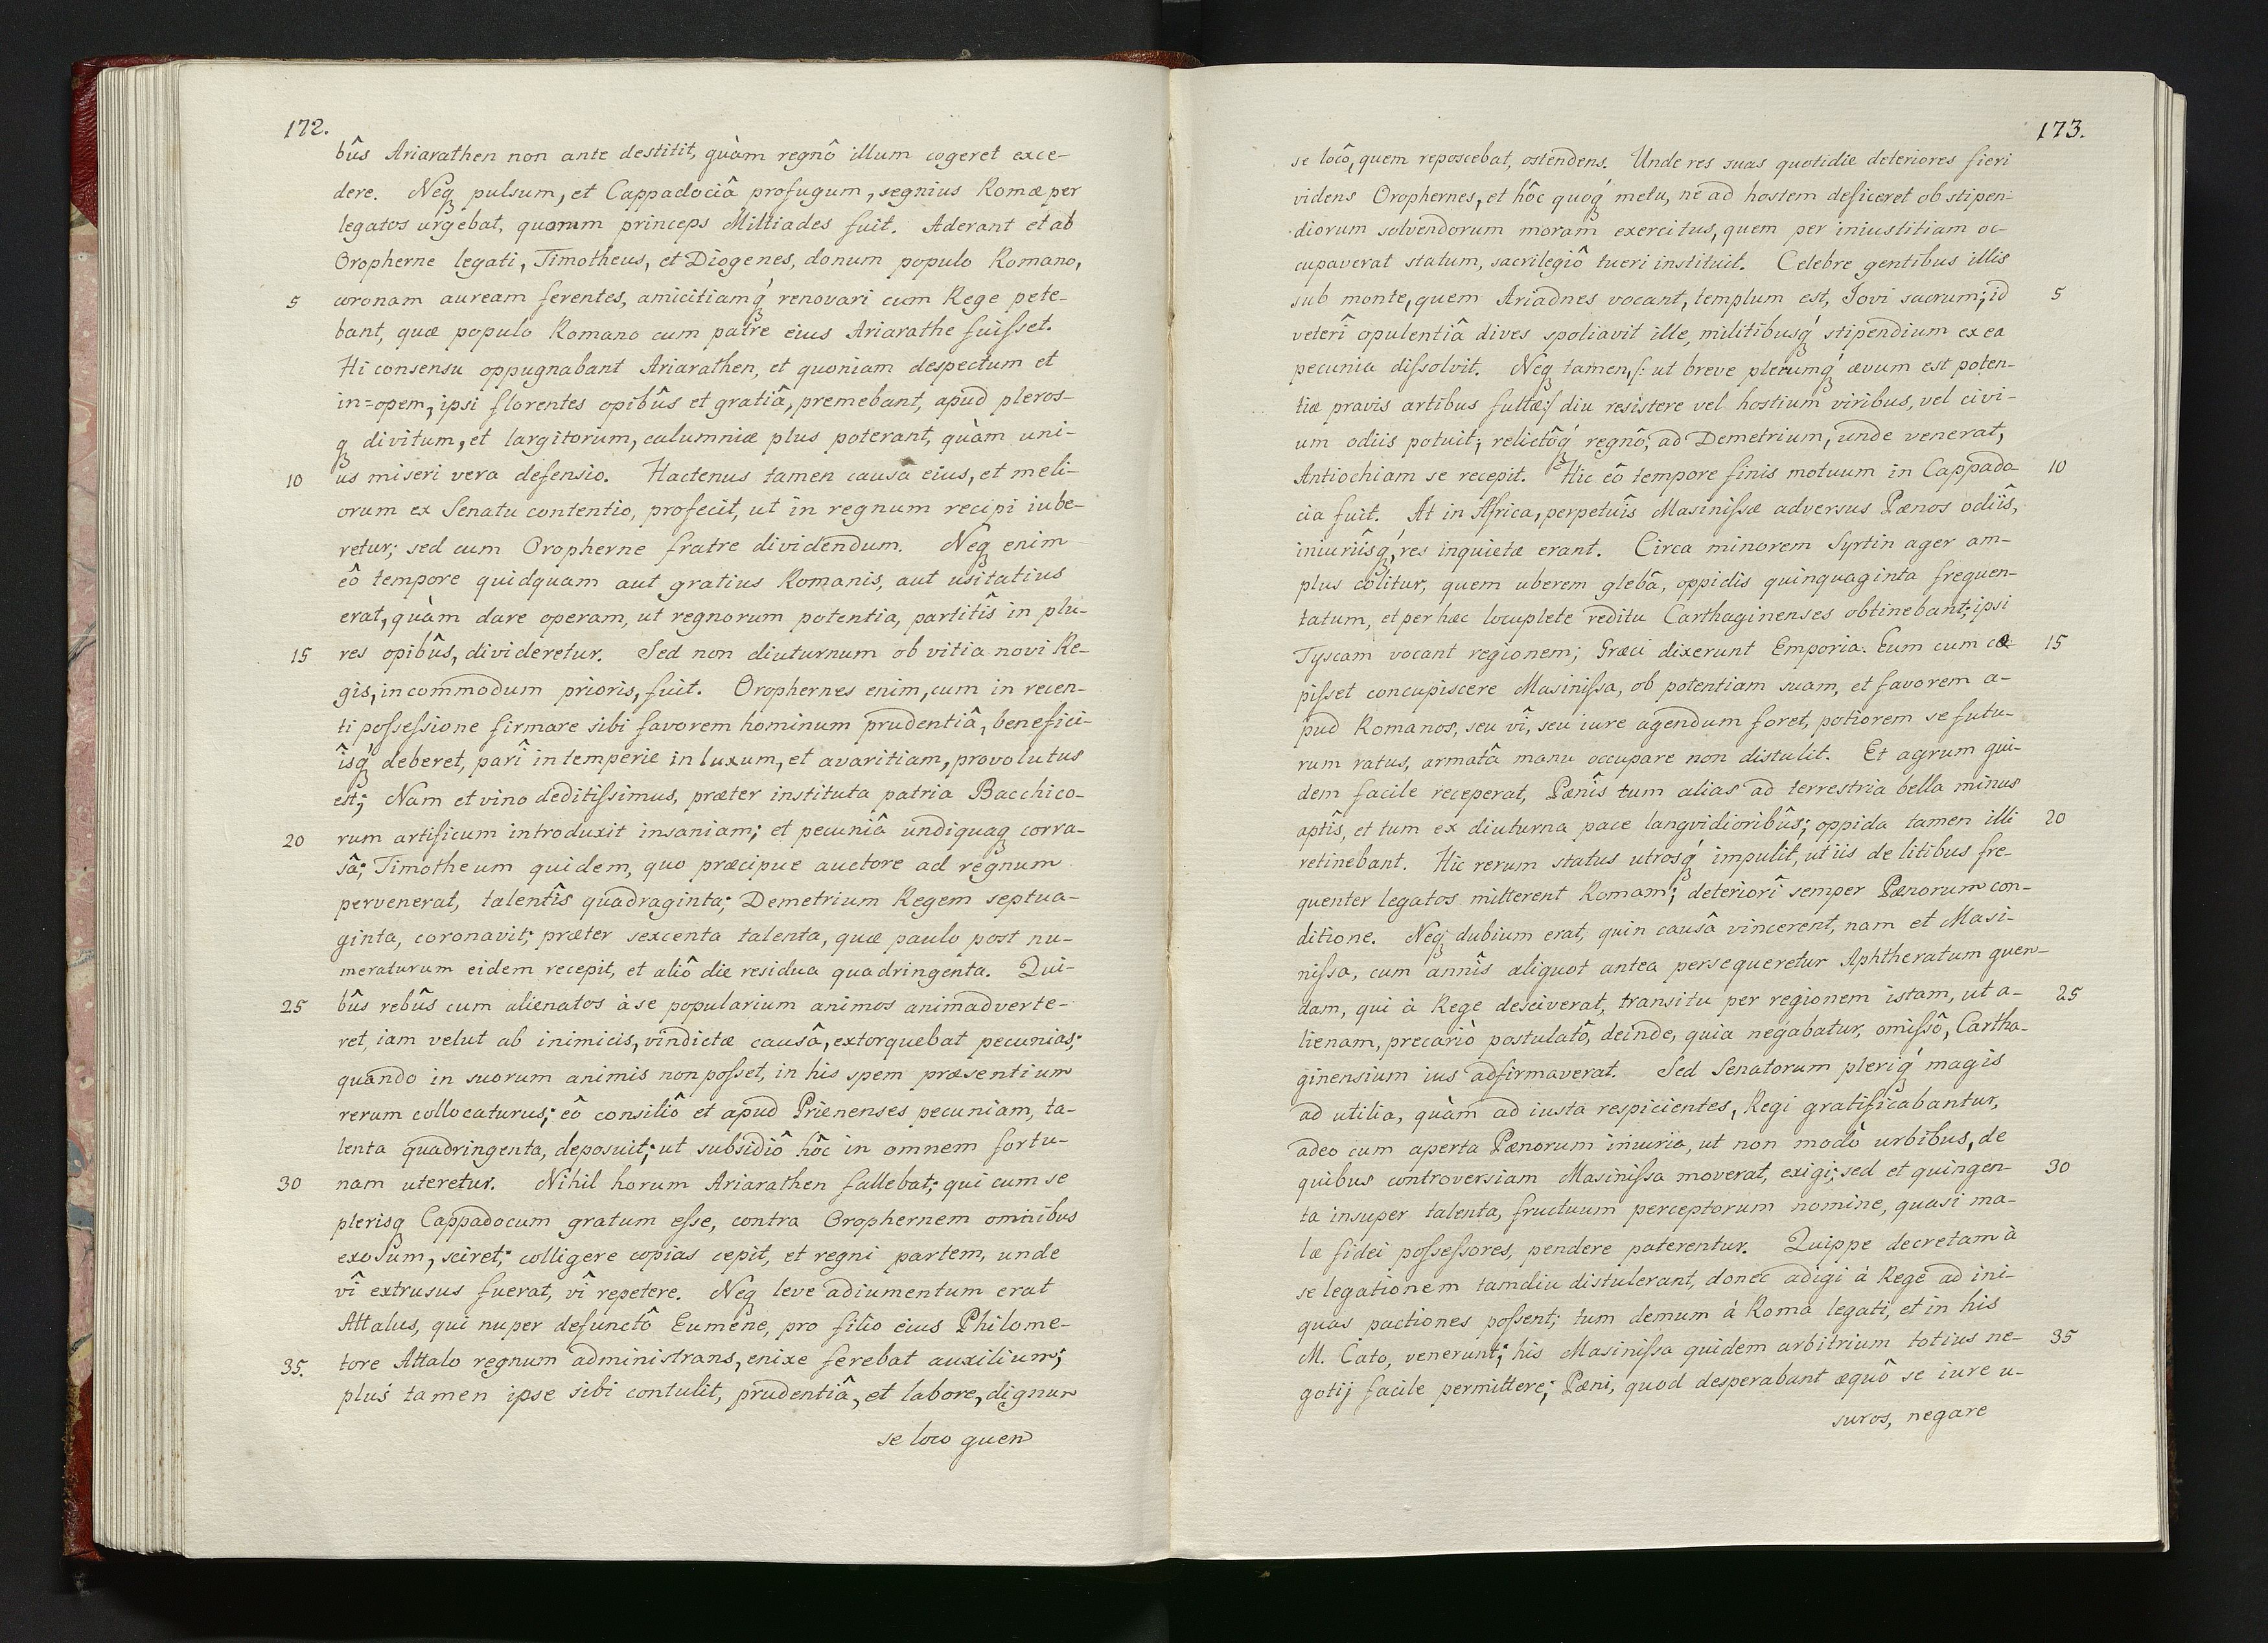 172.
bûs Ariarathen non ante destitit, quàm regnô illum cogeret exce-
dere. Neqꝫ pulsum, et Cappadociâ profugum, segnius Romæ per
legatos urgebat, quorum princeps Miltiades fuit. Aderant et ab
Oropherne legati, Timotheus, et Diogenes, donum populo Romano,
5 coronam auream ferentes, amicitiamqꝫ́ renovari cum Rege pete-
bant, quæ populo Romano cum patre eius Ariarathe fuiſset.
Hi consensu oppugnabant Ariarathen, et quoniam despectum et
in=opem, ipsi florentes opibûs et gratiâ, premebant, apud pleros-
qꝫ divitum, et largitorum, calumniæ plus poterant, quàm uni-
10 us miseri vera defensio. Hactenus tamen causa eius, et meli-
orum ex Senatu contentio, profecit, ut in regnum recipi iube-
retur; sed cum Oropherne fratre dividendum. Neqꝫ enim
eô tempore quidquam aut gratius Romanis, aut usitatius
erat, quàm dare operam, ut regnorum potentia, partitîs in plu-
15 res opibûs, divideretur. Sed non diuturnum ob vitia novi Re-
gis, incommodum prioris, fuit. Orophernes enim, cum in recen-
ti poſseſsione firmare sibi favorem hominum prudentiâ, benefici-
îsqꝫ́ deberet, parî intemperie in luxum, et avaritiam, provolutus
est; Nam et vino deditiſsimus, præter instituta patria Bacchico-
20 rum artificum introduxit insaniam; et pecuniâ undiquaqꝫ corra-
sâ; Timotheum quidem, quo præcipue auctore ad regnum
pervenerat, talentîs quadraginta; Demetrium Regem septua-
ginta, coronavit; præter sexcenta talenta, quæ paulo post nu-
meraturum eidem recepit, et aliô die residua quadringenta. Qui-
25 bûs rebûs cum alienatos à se popularium animos animadverte-
ret, iam velut ab inimicis, vindictæ causâ, extorquebat pecunias;
quando in suorum animis non poſset, in his spem præsentium
rerum collocaturus; eô consiliô et apud Prienenses pecuniam, ta-
lenta quadringenta, deposuit; ut subsidiô hôc in omnem fortu-
30 nam uteretur. Nihil horum Ariarathen fallebat; qui cum se
plerisqꝫ Cappadocum gratum eſse, contra Orophernem omnibus
exosum, sciret; colligere copias cepit, et regni partem, unde
vî extrusus fuerat, vî repetere. Neqꝫ leve adiumentum erat
Attalus, qui nuper defunctô Eumene, pro filio eius Philome-
35. tore Attalo regnum administrans, enixe ferebat auxilium;
plus tamen ipse sibi contulit, prudentiâ, et labore, dignum
se loco quem
173.
se locô, quem reposcebat, ostendens. Unde res suas quotidie deteriores fieri
videns Orophernes, et hôc quoqꝫ́ metu, ne ad hostem deficeret ob stipen-
diorum solvendorum moram exercitus, quem per iniustitiam oc-
cupaverat statum, sacrilegiô tueri instituit. Celebre gentibus illis
sub monte, quem Ariadnes vocant, templum est, Jovi sacrum; id 5
veterî opulentiâ dives spoliavit ille, militibusqꝫ́ stipendium ex ea
pecunia diſsolvit. Neqꝫ tamen, /: ut breve plerumqꝫ́ ævum est poten-
tiæ pravis artibus fultæ:/ diu resistere vel hostium viribus, vel civi-
um odiis potuit; relictôqꝫ́ regnô, ad Demetrium, unde venerat,
Antiochiam se recepit. Hic eô tempore finis motuum in Cappado 10
cia fuit. At in Africa, perpetuîs Masiniſsæ adversus Pænos odiîs,
iniuriîsqꝫ́, res inquietæ erant. Circa minorem Syrtin ager am-
plus colitur, quem uberem glebâ, oppidis quinquaginta frequen-
tatum, et per hæc locuplete reditu Carthaginenses obtinebant; ipsi
Tyscam vocant regionem; Græci dixerunt Emporia. Eum cum cæ 15
piſset concupiscere Masiniſsa, ob potentiam suam, et favorem a-
pud Romanos, seu vî, seu iure agendum foret, potiorem se futu-
rum ratus, armatâ manu occupare non distulit. Et agrum qui-
dem facile receperat, Pænîs tum alias ad terrestria bella minus
aptîs, et tum ex diuturna pace langvidioribûs; oppida tamen illi 20
retinebant. Hic rerum status utrosqꝫ́ impulit, ut iis de litibus fre-
quenter legatos mitterent Romam; deteriorî semper Pænorum con-
ditione. Neqꝫ dubium erat, quin causâ vincerent, nam et Masi-
niſsa, cum annîs aliquot antea persequeretur Aphtheratum quen-
dam, qui à Rege desciverat, transitu per regionem istam, ut a- 25
lienam, precariò postulatô, deinde, quia negabatur, omiſsô, Cartha-
ginensium ius adfirmaverat. Sed Senatorum pleriqꝫ́ magis
ad utilia, quàm ad iusta respicientes, Regi gratificabantur,
adeo cum aperta Pænorum iniuria, ut non modò urbibus, de
quibus controversiam Masiniſsa moverat, exigi; sed et quingen- 30
ta insuper talenta, fructuum perceptorum nomine, quasi ma-
læ fidei poſseſsores, pendere paterentur. Quippe decretam à
se legationem tamdiu distulerant, donec adigi à Rege ad ini-
quas pactiones poſsent; tum demum à Roma legati, et in his
M. Cato, venerunt; his Masiniſsa quidem arbitrium totius ne- 35
gotij facile permittere; Pæni, quod desperabant æquô se iure u-
suros, negare